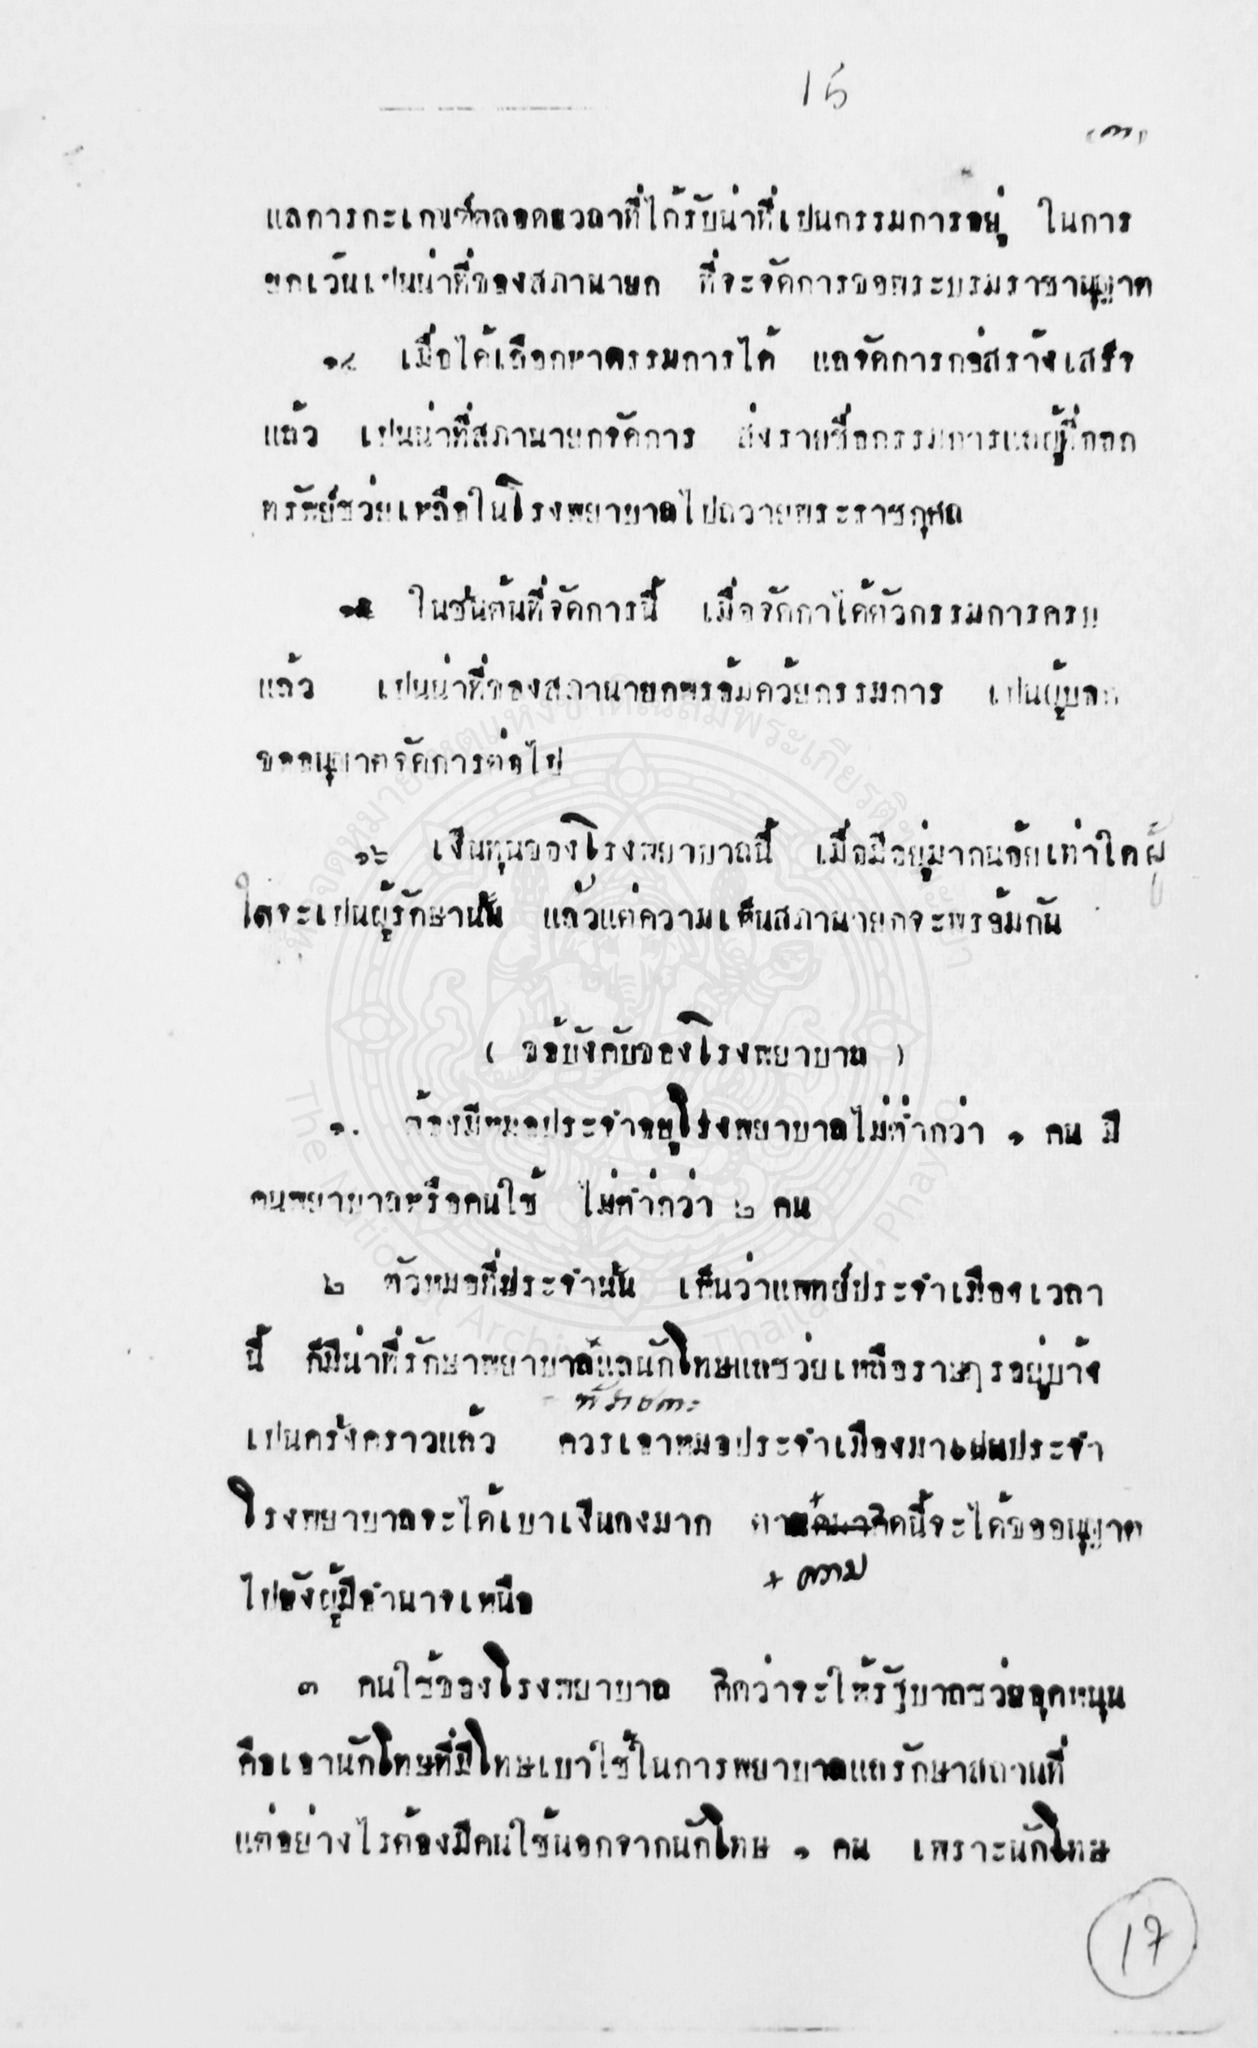 15
(๓)
แลการกะเกณฑ์ตลอดเวลาที่ได้รับน่าที่เปนกรรมการอยู่ ในการ
ยกเว้นเปนน่าที่ของสภานายก ที่จะจัดการขอพระบรมราชานุญาต
๑๔ เมื่อได้เลือกหากรรมการได้ แลจัดการก่อสร้างเสร็จ
แล้ว เปนน่าที่สภานายกจัดการ ส่งรายชื่อกรรมการแลผู้ที่ออก
ทรัพย์ช่วยเหลือในโรงพยาบาลไปถวายพระราชกุศล
๑๕ ในชั้นต้นที่จัดการนี้ เมื่อจัดกาได้ตัวกรรมการครบ
แล้ว เปนน่าที่ของสภานายกพร้อมด้วยกรรมการ เปนผู้บอก
ขออนุญาตจัดการต่อไป
๑๖ เงินทุนของโรงพยาบาลนี้ เมื่อมีอยู่มากน้อยเท่าใดผู้
ใดจะเปนผู้รักษานั้น แล้วแต่ความเห็นสภานายกจะพร้อมกัน
( ข้อบังคับของโรงพยาบาล )
๑. ต้องมีหมอประจำอยู่โรงพยาบาลไม่ต่ำกว่า ๑ คน มี
คนพยาบาลหรือคนใช้ ไม่ต่ำกว่า ๒ คน
๒ ตัวหมอที่ประจำนั้น เห็นว่าแพทย์ประจำเมืองเวลา
นี้ ก็มีน่าที่รักษาพยาบาลแลนักโทษแลช่วยเหลือราษฎรอยู่บ้าง
เปนครั้งคราวแล้ว ควรเอาหมอประจำเมืองมาเปนประจำ
โรงพยาบาลจะได้เบาเงินลงมาก ตามคิดนี้จะได้ขออนุญาต
+ ความ
ไปยังผู้มีอำนาจเหนือ
๓ คนใช้ของโรงพยาบาล คิดว่าจะให้รัฐบาลช่วยอุดหนุน
คือเอานักโทษที่มีโทษเบาใช้ในการพยาบาลแลรักษาสถานที่
แต่อย่างไรต้องมีคนใช้นอกจากนักโทษ ๑ คน เพราะนักโทษ
17
หอจดหมายเหตุแห่งชาติเฉลิมพระเกียรติฯ พะเยา
The National Archives of Thailand, Phayao